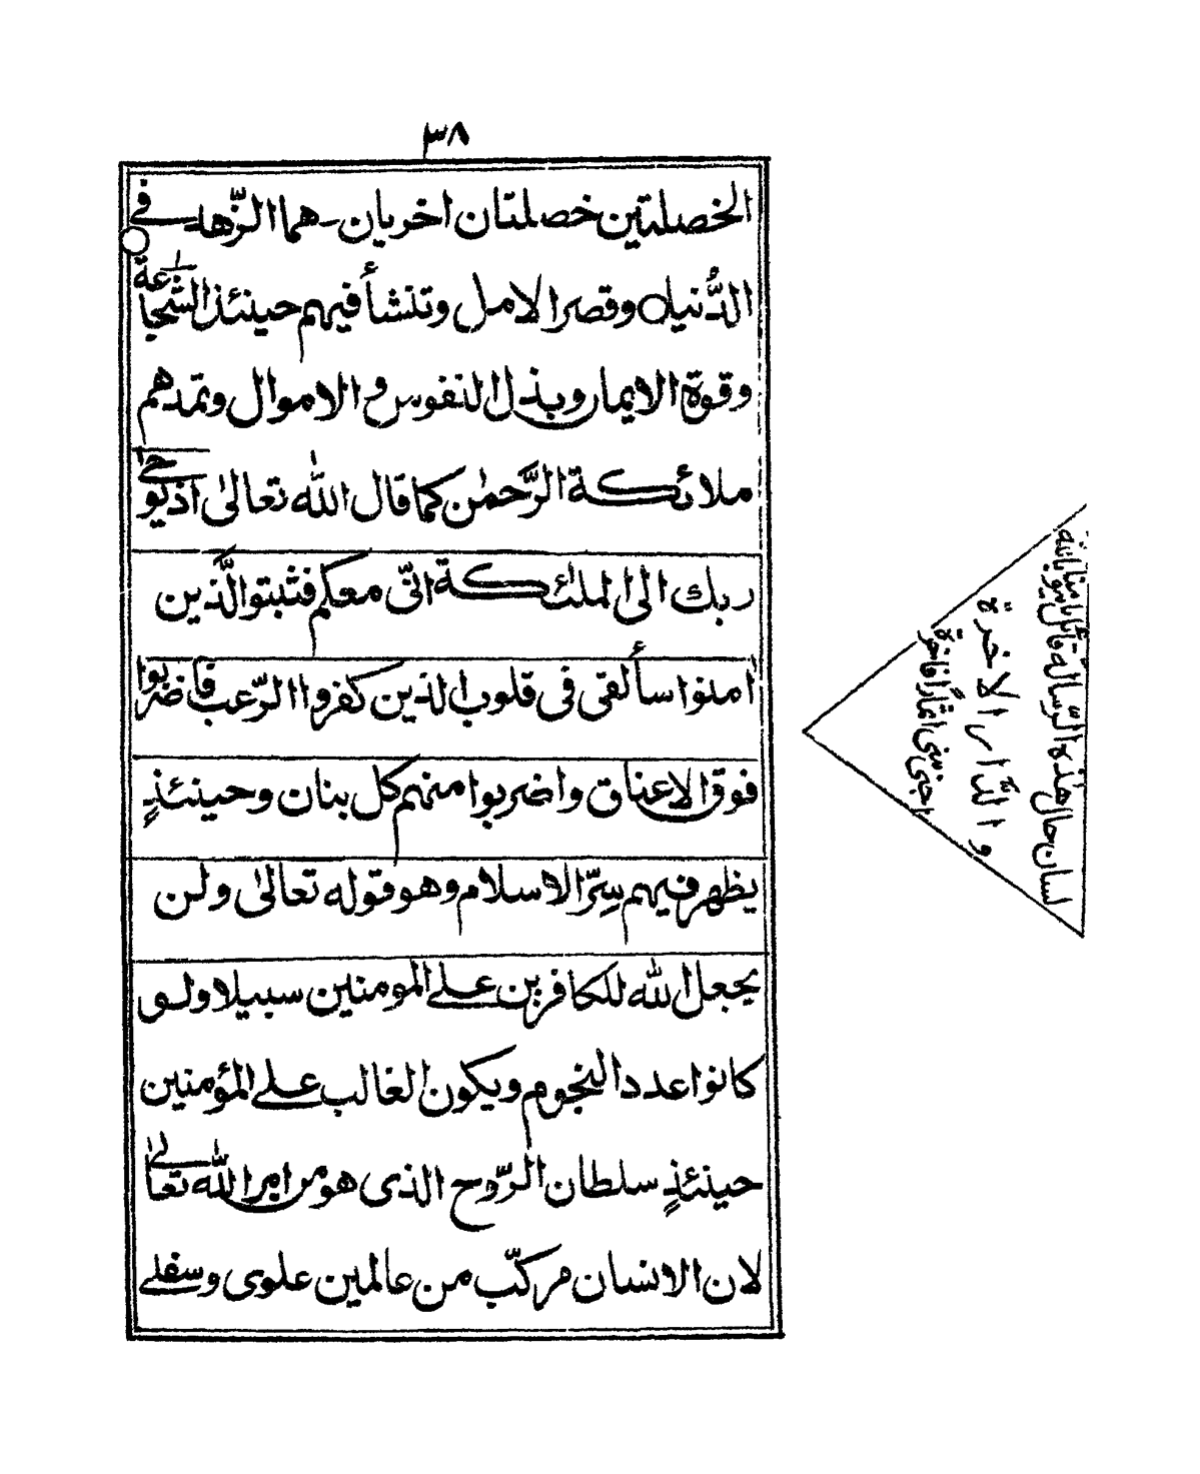 ٣٨
الخصلتين خصلتان اخريان هما الزّهد في
الدُّنيا وقصر الامل وتنشأ فيهم حينئذ الشّجاعة
وقوة الايمان وبذل النفوس والاموال وتمدهم
ملائكة الرَّحمٰن كما قال الله تعالىٰ اذ يوحى
ربك الى الملٰئكة انّى معكم فثبتوا الَّذين
اٰمنوا سألقى فى قلوب الذين كفروا الرّعب فاضربوا
فوق الاعناق واضربوا منهم كل بنان وحينئذٍ
يظهر فيهم سِرّ الاسلام وهو قوله تعالىٰ ولن
يجعل الله للكافرين على المومنين سبيلا ولو
كانوا عدد النجوم ويكون الغالب على المؤمنين
حينئذٍ سلطان الرّوح الذى هو من امر الله تعالىٰ
لان الانسان مركّب من عالمين علوى وسفلى
لسان حال هٰذه الرّسالة قائل
والدّار الاخرة
اجنى اثمارا فاخرة